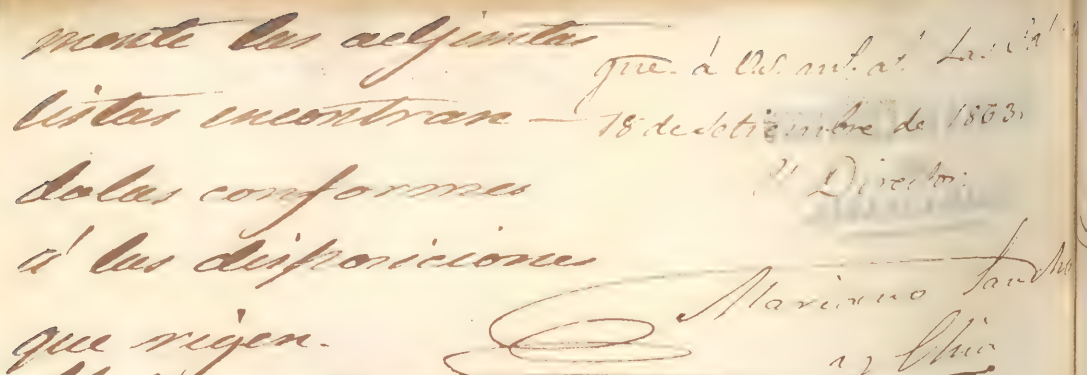 mente las adjuntas
listas encontran-
dolas conformes
á las disposiciones
que rigen.
que á
18 de Setiembre de 1863.
El Director.
Mariano Sanch
y Chia